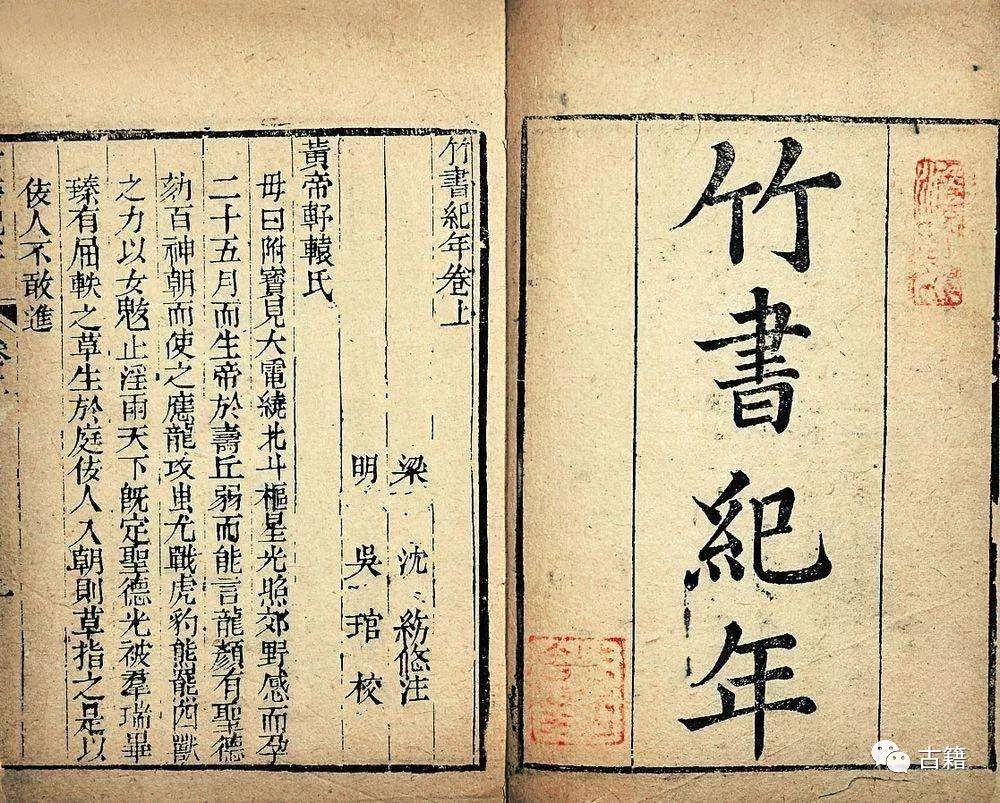 竹書紀年
竹書紀年卷上
梁 沈 約 注
明 吳 琯 校
黃帝軒轅氏
母曰附寶見大電繞北斗樞星光照郊野感而孕
二十五月而生帝於壽丘弱而能言龍顏有聖德
劾百神朝而使之應龍攻蚩尤戰虎豹熊羆四獸
之力以女魃止淫雨天下既定聖德光被羣瑞畢
臻有屈軼之草生於庭佞人入朝則草指之是以
佞人不敢進
古籍